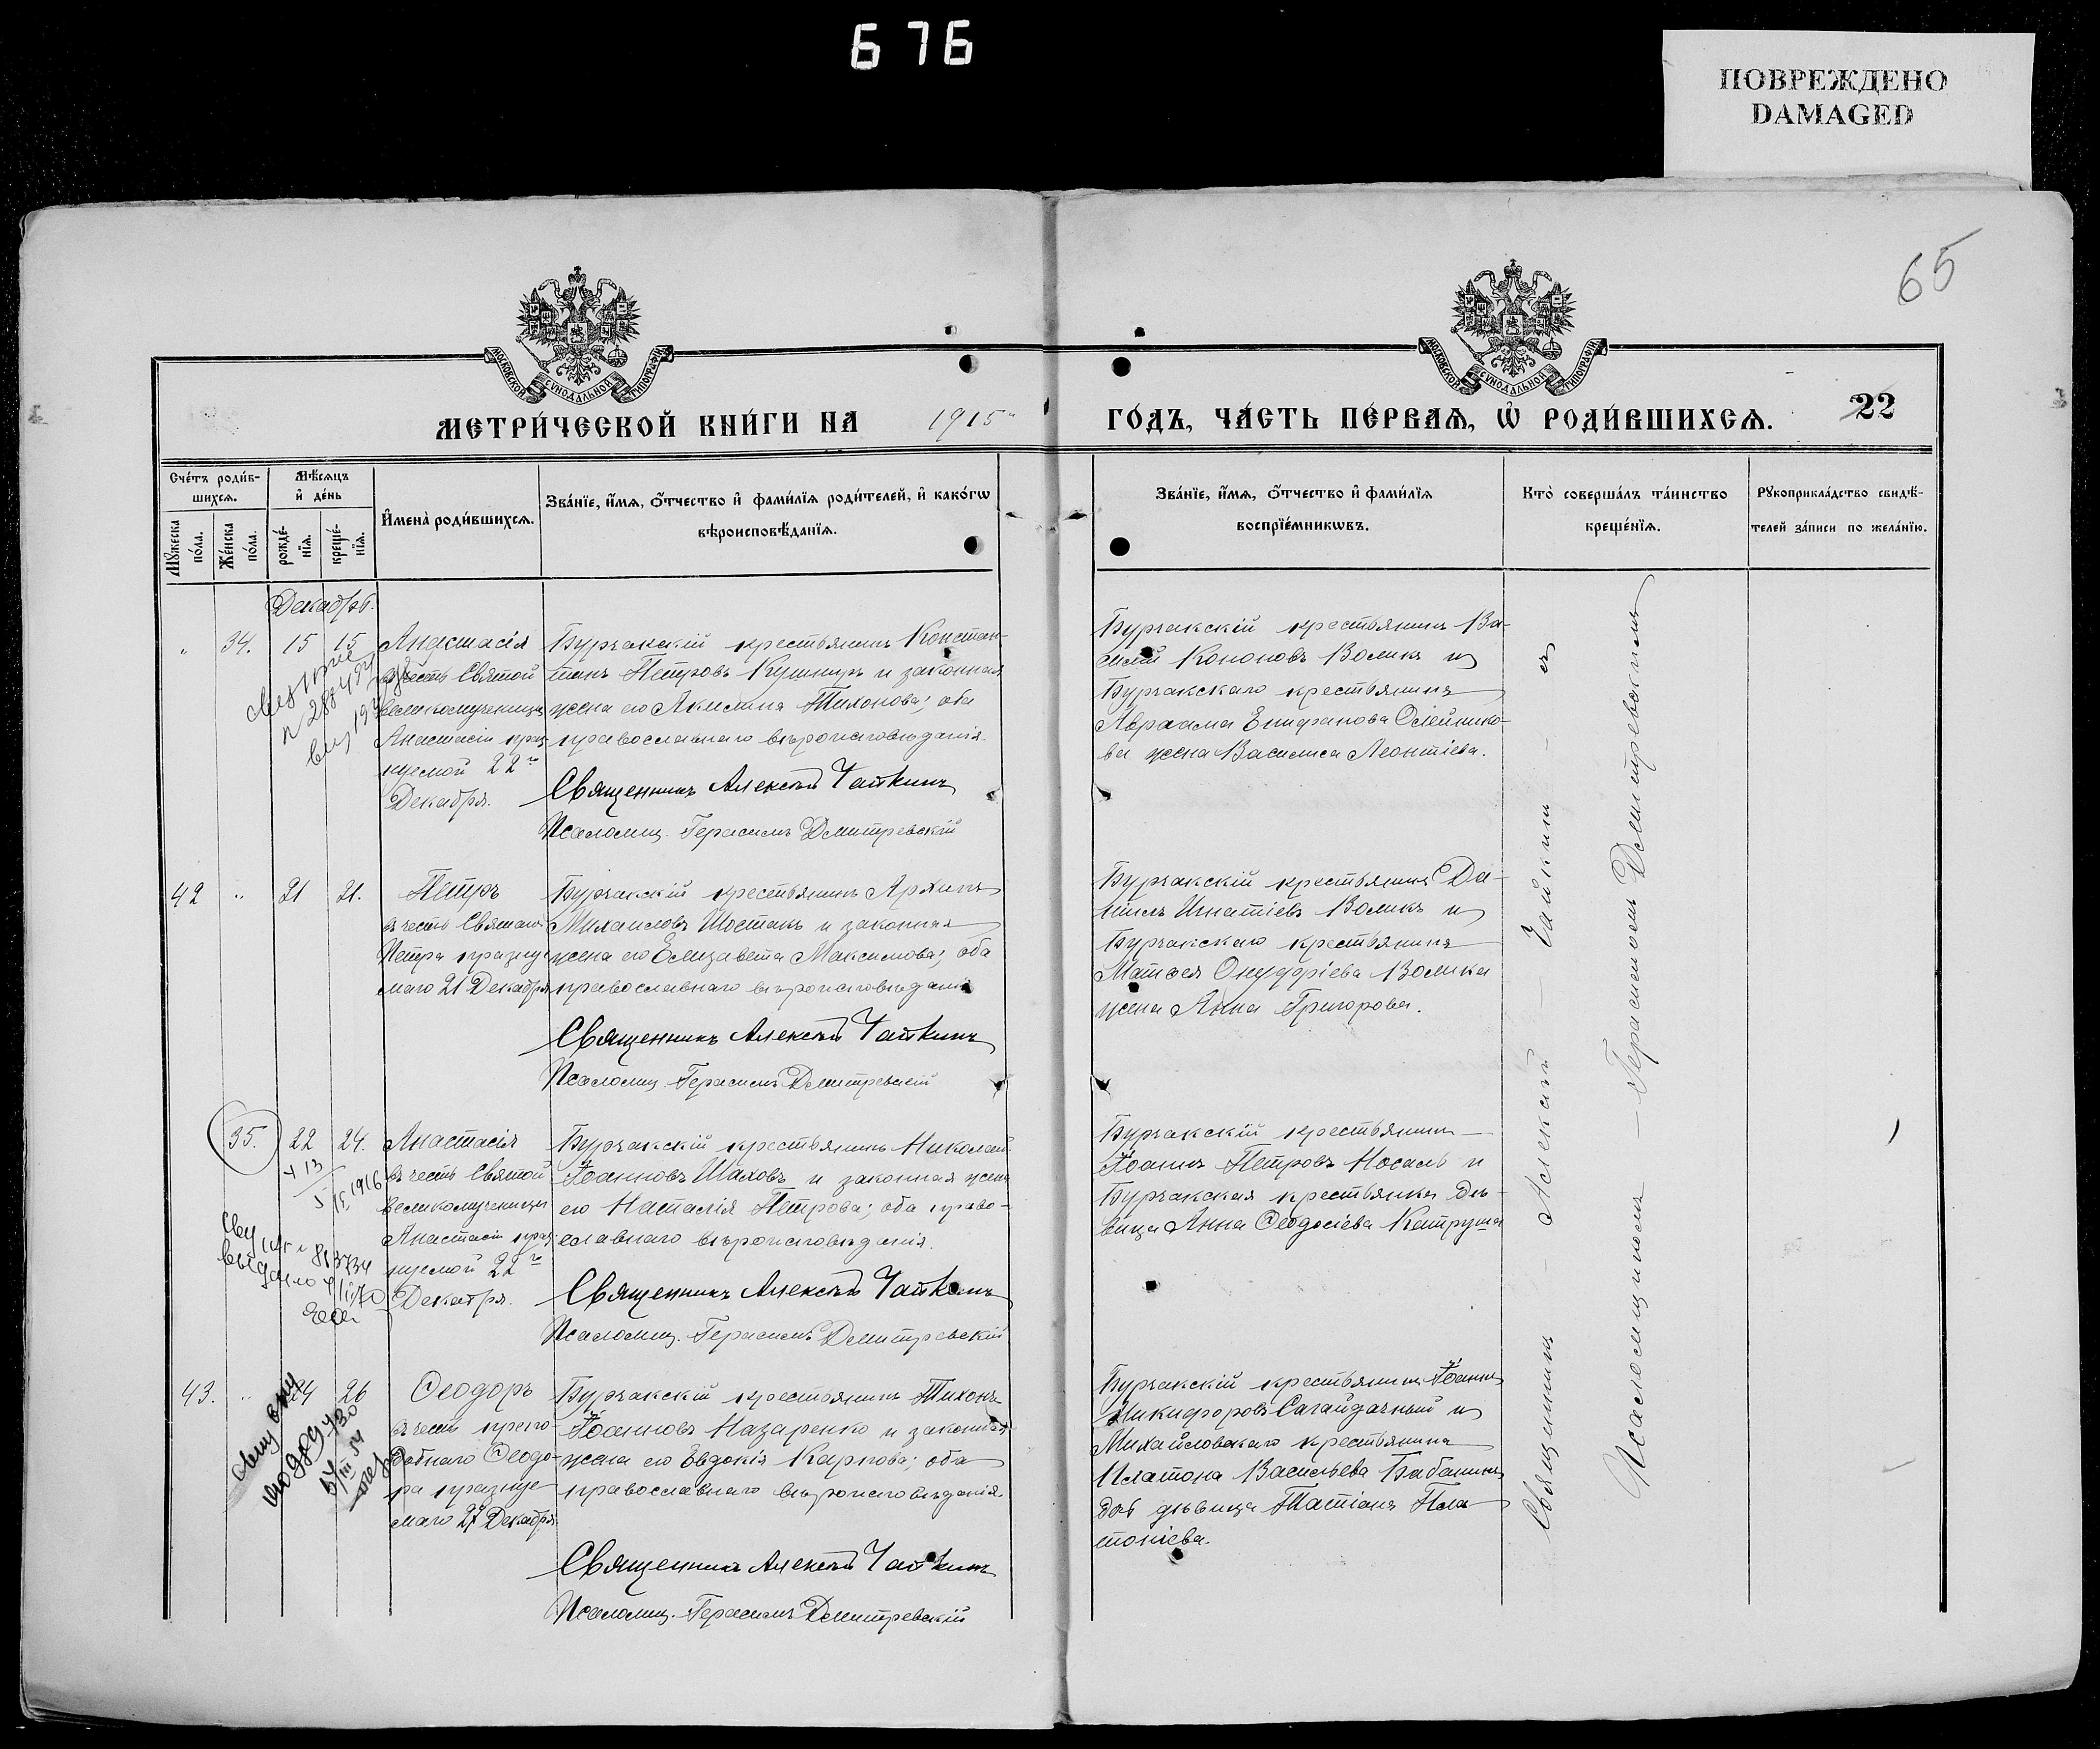 676
ПОВРЕЖДЕНО
DAMAGED
65
МОСКОВСКОЙ СѴНОДАЛЬНОЙ ТИПОГРАФІИ
МОСКОВСКОЙ СѴНОДАЛЬНОЙ ТИПОГРАФІИ
МЕТРИ́ЧЕСКОЙ КНИ́ГИ НА 1915
ГО́ДЪ, ЧА́СТЬ ПЕ́РВАѦ, Ѡ҆ РОДИ́ВШИХСѦ. 22
Сче́тъ роди́в-
шихсѧ.
Мꙋ́жеска
по́ла.
Же́нска
по́ла.
Мѣ́сѧцъ
и҆ де́нь
рожде́-
нїѧ.
креще́-
нїѧ.
И҆мена̀ роди́вшихсѧ.
Зва́нїе, и҆́мѧ, ѻ҆́тчество и҆ фами́лїѧ роди́телей, и҆ како́гѡ
вѣроисповѣ́данїѧ.
Зва́нїе, и҆́мѧ, ѻ҆́тчество и҆ фами́лїѧ
воспрїе́мникѡвъ.
Кто̀ соверша́лъ та́инство
креще́нїѧ.
Рꙋкоприкла́дство свидѣ́-
телей за́писи по жела́нїю.
Декабрь.
" 34. 15 15
Анастасія
въ честь Святой
великомученицы
Анастасіи праз-
нуемой 22го
Декабря.
Бурчакскій крестьянинъ Констан-
тинъ Петровъ Кушниръ и законная
жена его Акилина Тихонова; оба
православнаго вѣроисповѣданія.
Священникъ Алексѣй Чайкинъ
Псаломщ. Герасимъ Дмитревскій
Бурчакскій крестьянинъ Ва-
силій Кононовъ Воликъ и
Бурчакскаго крестьянина
Авраама Епифанова Олейнико-
ва жена Василиса Леонтіева.
42 " 21 21.
Петръ
въ честь Святаго
Петра празнуе-
маго 21 Декабря
Бурчакскій крестьянинъ Архипъ
Михаиловъ Шостакъ и законная
жена его Елизавета Максимова; оба
православнаго вѣроисповѣданія
Священникъ Алексѣй Чайкинъ
Псаломщ. Герасимъ Дмитревскій
Бурчакскій крестьянинъ Да-
ніилъ Игнатіевъ Воликъ и
Бурчакскаго крестьянина
Матѳея Онуфріева Волика
жена Анна Григорова.
35. 22 24.
1916
813734
Анастасія
въ честь Святой
великомученицы
Анастасіи праз-
нуемой 22го
Декабря.
Бурчакскій крестьянинъ Николай
Іоанновъ Шаховъ и законная жена
его Наталія Петрова; оба право-
славнаго вѣроисповѣданія.
Священникъ Алексѣй Чайкинъ
Псаломщ. Герасимъ Дмитревскій
Бурчакскій крестьянинъ
Іоаннъ Петровъ Носаль и
Бурчакская крестьянка дѣ-
вица Анна Ѳеодосіева Катруша
43. " 24 26
Ѳеодоръ
въ честь препо-
добнаго Ѳеодо-
ра празнуе-
маго 27 Декабря.
Бурчакскій крестьянинъ Тихонъ
Іоанновъ Назаренко и законная
жена его Евдокія Карпова; оба
православнаго вѣроисповѣданія.
Священникъ Алексѣй Чайкинъ
Псаломщ. Герасимъ Дмитревскій
Бурчакскій крестьянинъ Іоаннъ
Никифоровъ Сагайдачный и
Михайловскаго крестьянина
Платона Васильева Бабанина
дочь дѣвица Татіана Пла-
тоніева.
Священникъ — Алексѣй — Чайкин — ъ
Псаломщикомъ — Герасимомъ Дмитревскимъ